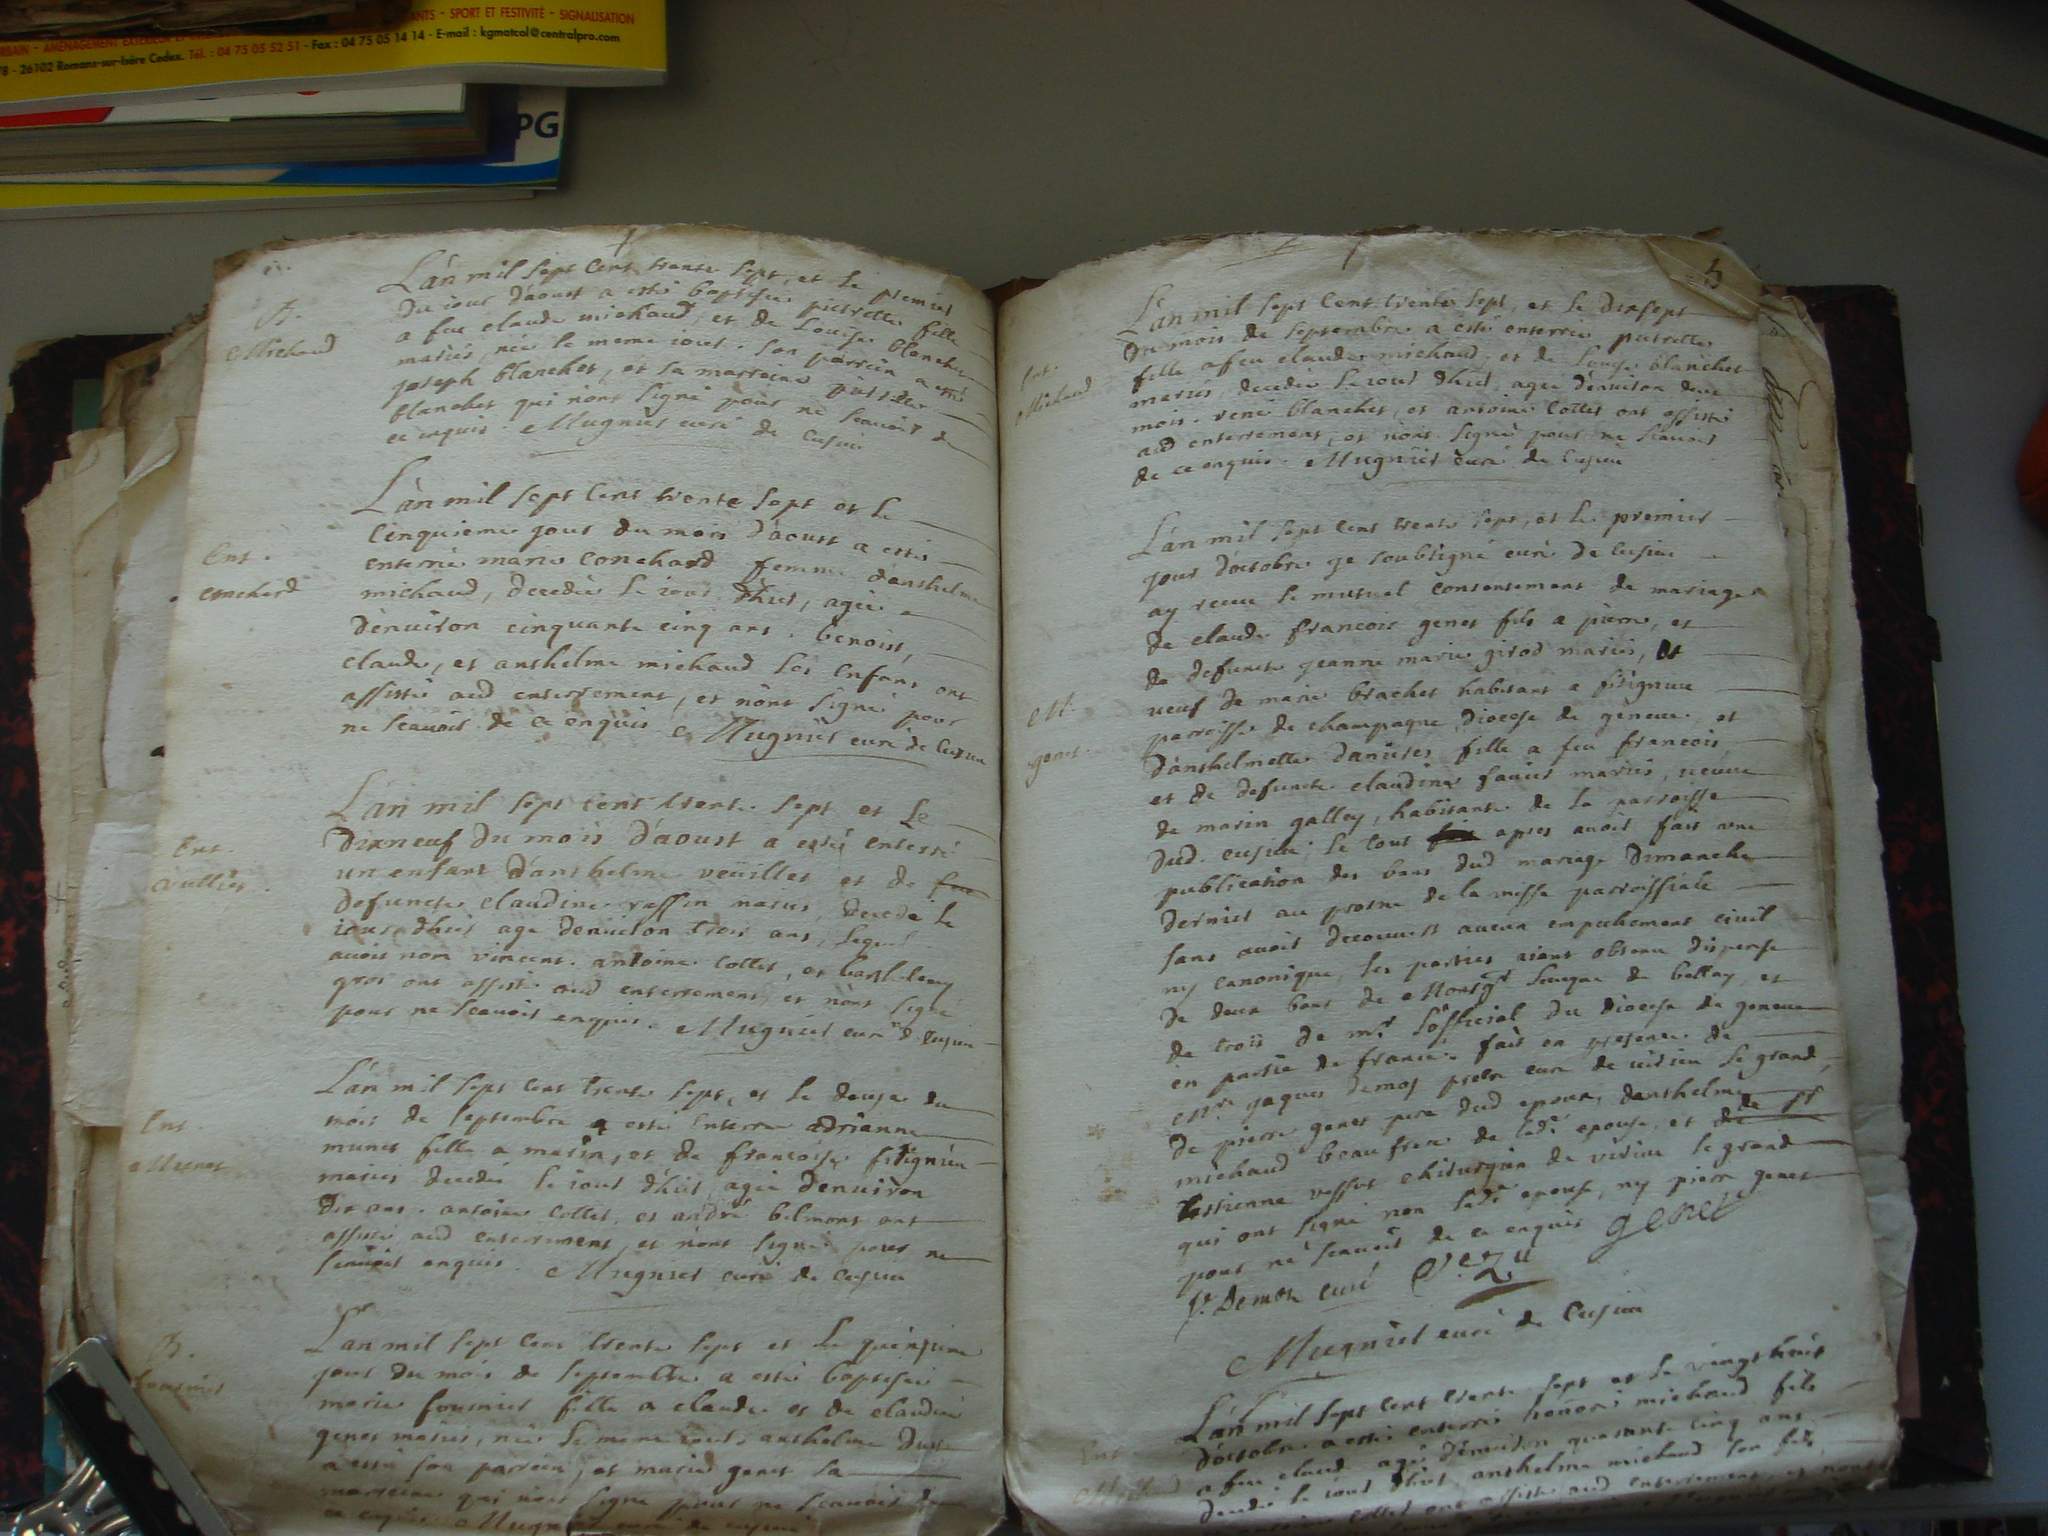 ANTS - SPORT ET FESTIVITÉ - SIGNALISATION
RBAIN - AMÉNAGEMENT EXTÉRIEUR ET
78 - 26102 Romans-sur-Isère Cedex. Tél. : 04 75 05 52 51 - Fax : 04 75 05 14 14 - E-mail : kgmatcol@centralpro.com
PG
B.
Michaud
L'an mil sept cent trente sept, et le premier
du iour d'aoust a esté baptisée pierrette fille
a feu claude michaud, et de Louise blanchet
mariés, née le meme iour. son parrein a esté
joseph blanchet, et sa marreine
blanchet qui n'ont signé pour ne scauoir de
ce enquis. Mugnier curé de Cusieu
Ent.
conchard
L'an mil sept cent trente sept et le
cinquieme jour du mois d'aoust a esté
enterrée marie conchard femme d'anthelme
michaud, decedée le iour d'hier, agée
d'enuiron cinquante cinq ans. benoist,
claude, et anthelme michaud ses enfans ont
assisté aud enterrement, et n'ont signé pour
ne scauoir de ce enquis Mugnier curé de Cusieu
Ent.
L'an mil sept cent trente sept et le
dixneuf du mois d'aoust a esté enterré
un enfant d'anthelme veüillet et de feue
defuncte claudine vassin mariés, decedé le
iour d'hier agé d'enuiron trois ans, lequel
auoit nom vincent. antoine collet, et barthelemy
gros ont assisté aud enterrement, et n'ont signé
pour ne scauoir enquis. Mugnier curé d Cusieu
Ent.
Munet
L'an mil sept cent trente sept, et le douze du
mois de septembre a esté enterrée adrianne
munet fille a marin, et de francoise fitignieu
mariés decedée le iour d'hier, agée d'enuiron
dix ans. antoine collet, et andré belmont ont
assisté aud enterrement, et n'ont signé pour ne
scauoir enquis. Mugnier curé de Cusieu
B.
fournier
L'an mil sept cent trente sept et le quinzieme
jour du mois de septembre a esté baptisée
marie fournier fille a claude et de claudine
genet mariés, née le meme iour. anthelme
a esté son parrein, et marie genet sa
marreine qui n'ont signé pour ne scauoir de
ce enquis. Mugnier curé de cusieu
5
Ent.
Michaud
L'an mil sept cent trente sept, et le dixsept
du mois de septembre a esté enterrée pierrette
fille a feu claude michaud, et de Louise blanchet
mariés, decedée le iour d'hier, agée d'enuiron deux
mois. rené blanchet, et antoine collet ont assisté
aud enterrement, et n'ont signé pour ne scauoir
de ce enquis. Mugnier curé de Cusieu
M.
genet
L'an mil sept cent trente sept, et le premier
jour d'octobre je soubsigné curé de Cusieu
ay receu le mutuel consentement de mariage
de claude francois genet fils a pierre, et
de defuncte jeanne marie girod mariés, et
veuf de marie brachet habitant a fitignieu
parroisse de champagne, diocese de geneue, et
d'anthelmette fille a feu francois,
et de defuncte claudine mariés, veuve
de marin galley, habitante de la parroisse
dud. cusieu; le tout apres auoir fait une
publication des bans dud mariage dimanche
dernier au prosne de la messe parroissiale
sans auoir decouuert aucun empechement ciuil
ny canonique, les parties aiant obtenu dispense
de deux bans de Monsgr l'eueque de bellay, et
de trois de mr l'official du diocese de geneue
en partie de france. fait en presence de
Mre jaques demos curé de virieu le grand,
de pierre genet pere dud epoux, d'anthelme
michaud beaufrere de lade epouse, et de sr
estienne chirurgien de virieu le grand
qui ont signé non lade epouse, ny pierre genet
pour ne scauoir de ce enquis genet
J. Demos curé
Mugnier curé de Cusieu
Ent.
Michaud
L'an mil sept cent trente sept et le vingt huit
d'octobre a esté enterré honoré michaud fils
a feu claude agé d'enuiron quarante cinq ans
decedé le iour d'hier anthelme michaud son fils,
collet ont assisté aud enterrement, et n'ont